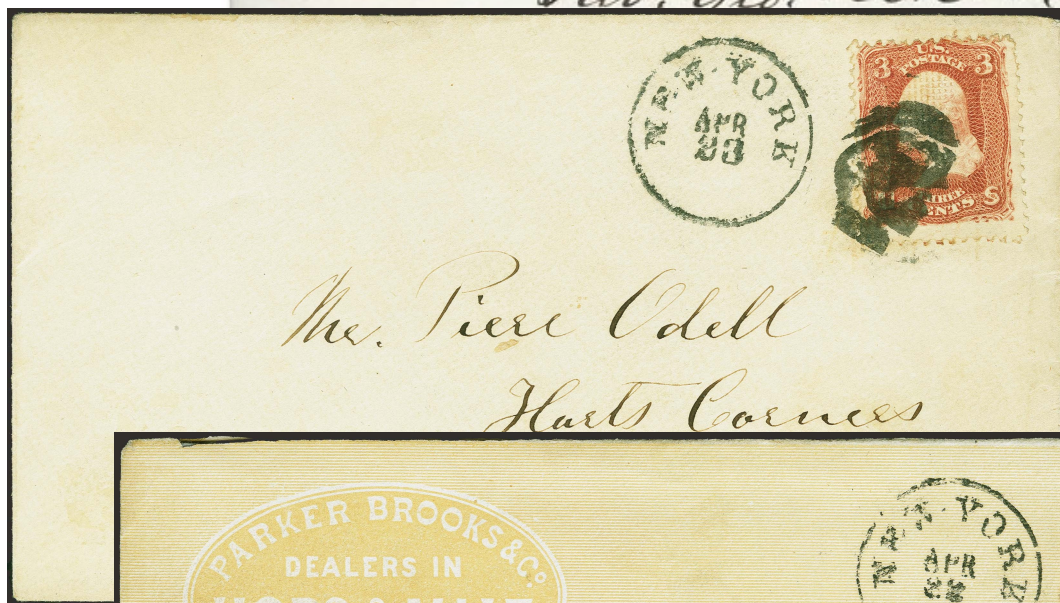 NEW-YORK
APR
23
U.S.
POSTAGE
3 3
THREE
CENTS
Mr. Piere Odell
Harts Corners
PARKER BROOKS & Co.
DEALERS IN
HOPS & MALT
NEW-YORK
APR
22